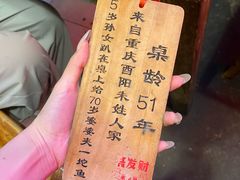 桌龄51年
来自重庆酉阳朱姓人家
5岁孙女趴在桌上给70岁婆婆夹一坨鱼
发财